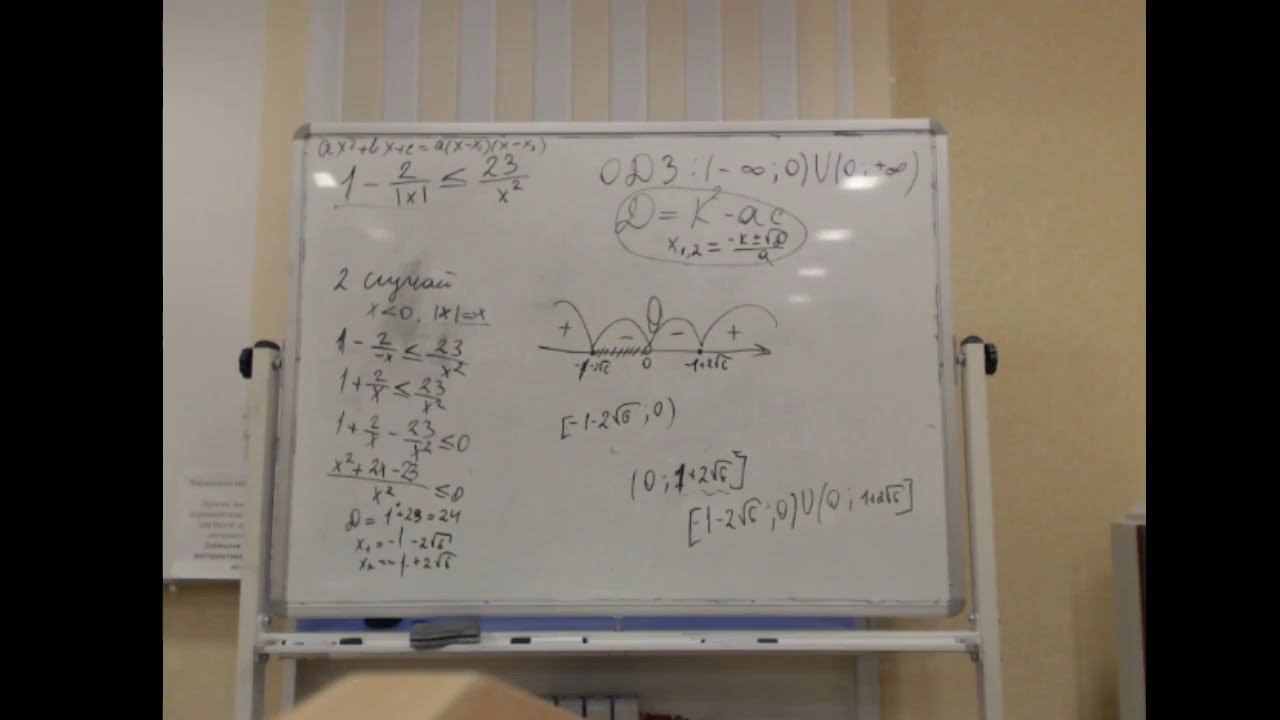 ax²+bx+c=a(x-x₁)(x-x₂)
1 - 2/|x| ≤ 23/x²
ОДЗ: (-∞;0)∪(0;+∞)
D = K² - ac
x₁,₂ = (-K±√D)/a
2 случай
x<0, |x|=-x
1 - 2/-x ≤ 23/x²
1 + 2/x ≤ 23/x²
1 + 2/x - 23/x² ≤ 0
(x²+2x-23)/x² ≤ 0
D = 1²+23 = 24
x₁ = -1 - 2√6
x₂ = -1 + 2√6
+ - - +
-1-2√6 0 -1+2√6
[-1-2√6;0)
(0;1+2√6]
[-1-2√6;0)∪(0;1+2√6]